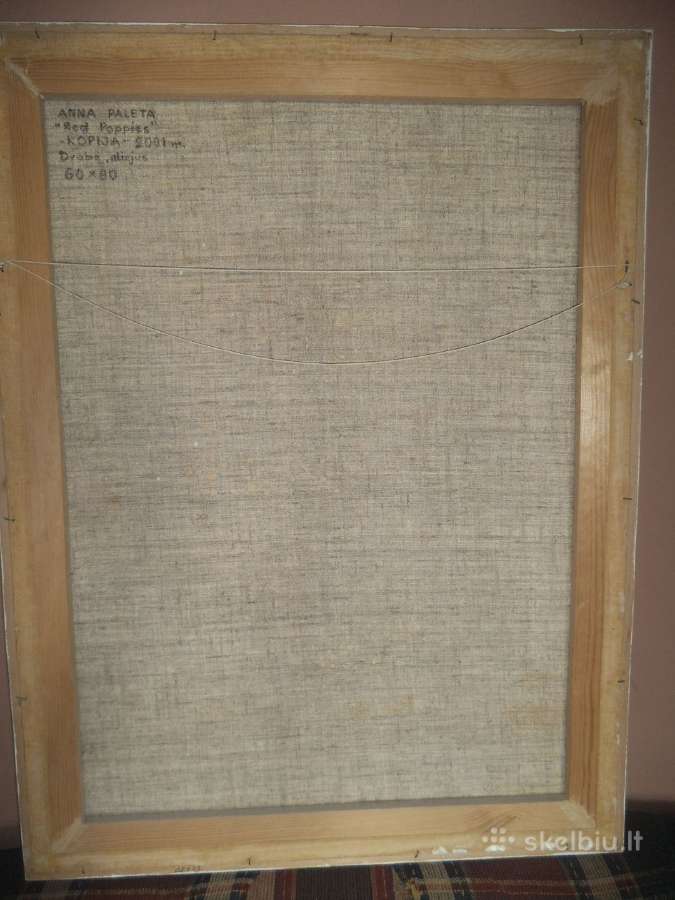 ANNA PALETA
"Red Poppies"
-KOPIJA- 2001 m.
Drobė, aliejus
60 x 80
skelbiu.lt